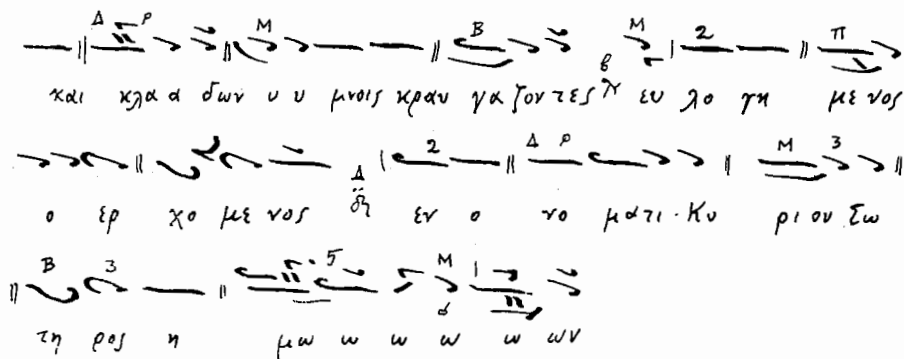 και κλα α δων υ υ μνοις κραυ γα ζον τες ευ λο γη με νος
ο ερ χο με νος εν ο νο μα τι · Κυ ρι ου Σω
τη ρος η μω ω ω ω ω ων